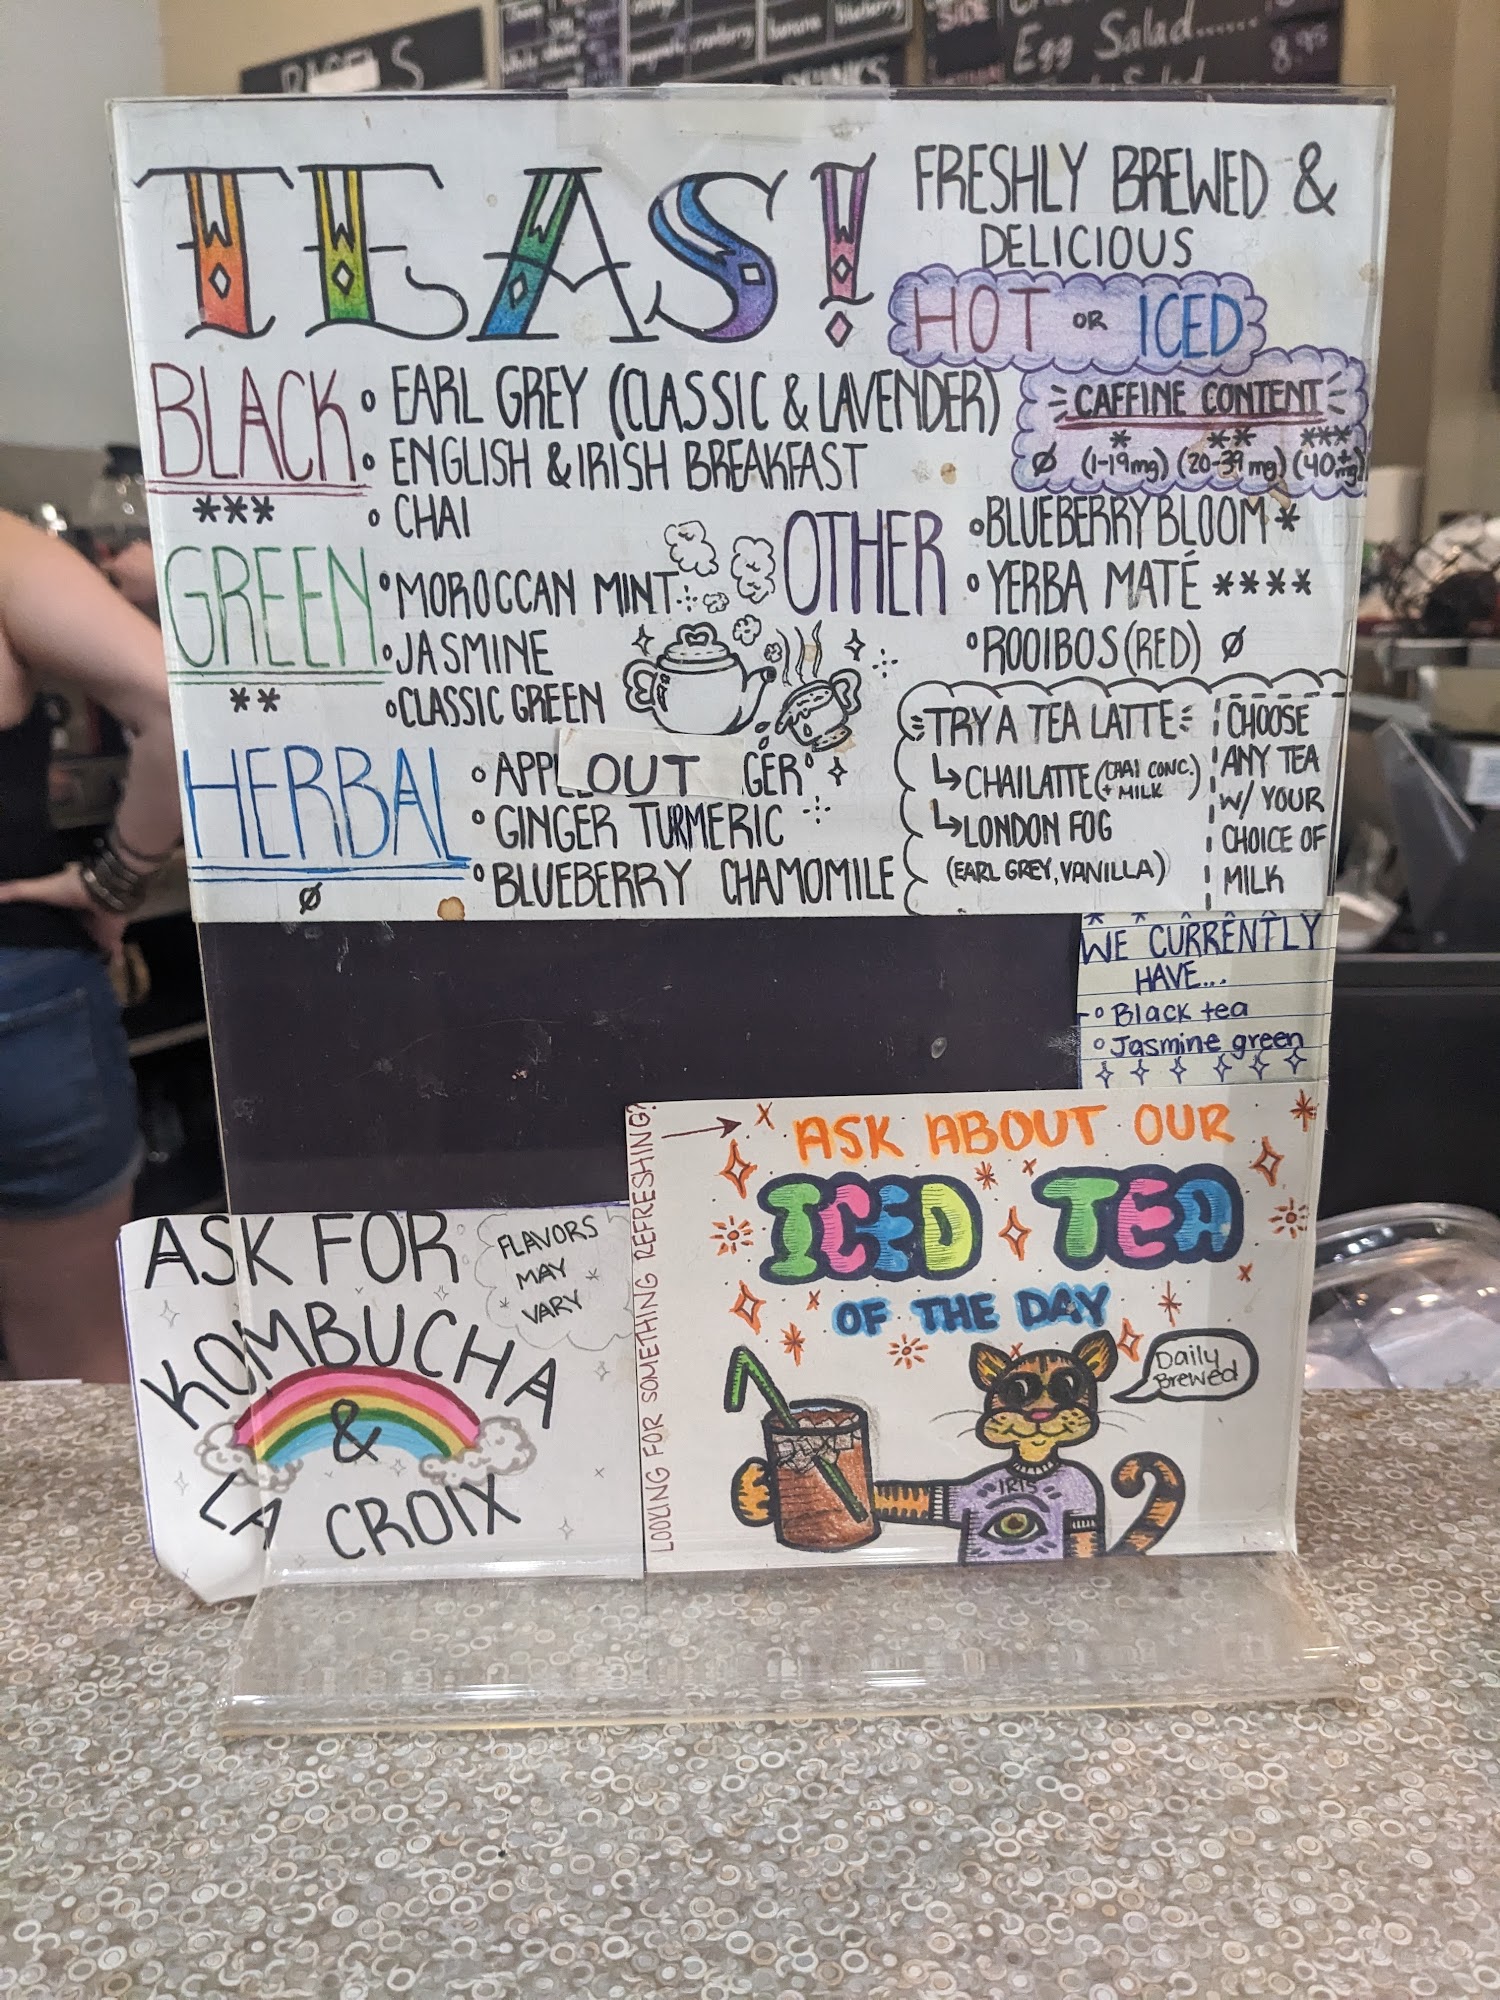 Egg Salad...... 
8.95
TEAS!
FRESHLY BREWED &
DELICIOUS
HOT OR ICED
CAFFINE CONTENT
* ** ***
Ø (1-19mg) (20-39 mg) (40+mg)
BLACK
***
° EARL GREY (CLASSIC & LAVENDER)
° ENGLISH & IRISH BREAKFAST
° CHAI
GREEN
**
° MOROCCAN MINT
° JASMINE
° CLASSIC GREEN
HERBAL
Ø
° APPL OUT GER
° GINGER TURMERIC
° BLUEBERRY CHAMOMILE
OTHER
° BLUEBERRY BLOOM *
° YERBA MATÉ ****
° ROOIBOS (RED) Ø
TRY A TEA LATTE
↳ CHAI LATTE (CHAI CONC. + MILK)
↳ LONDON FOG
(EARL GREY, VANILLA)
CHOOSE
ANY TEA
W/ YOUR
CHOICE OF
MILK
WE CURRENTLY
HAVE...
° Black tea
° Jasmine green
LOOKING FOR SOMETHING REFRESHING?
ASK ABOUT OUR
ICED TEA
OF THE DAY
Daily
Brewed
IRIS
ASK FOR
KOMBUCHA
&
LA CROIX
FLAVORS
MAY
VARY